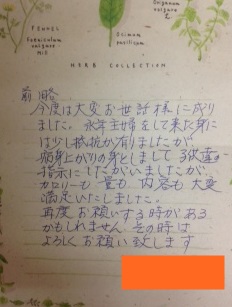 FENNEL
Foeniculum
vulgare
Mill
Thymus
pavilicum
Origanum
vulgare
L.
HERB COLLECTION
前略
今度は大変お世話様に成り
ました。永年主婦をして来た身に
は少し抵抗が有りましたが
病気上がりの身としまして子供達の
指示にしたがいましたが、
カロリーも量も内容も大変
満足いたしました。
再度お願いする時がある
かもしれません その時は
よろしくお願い致します